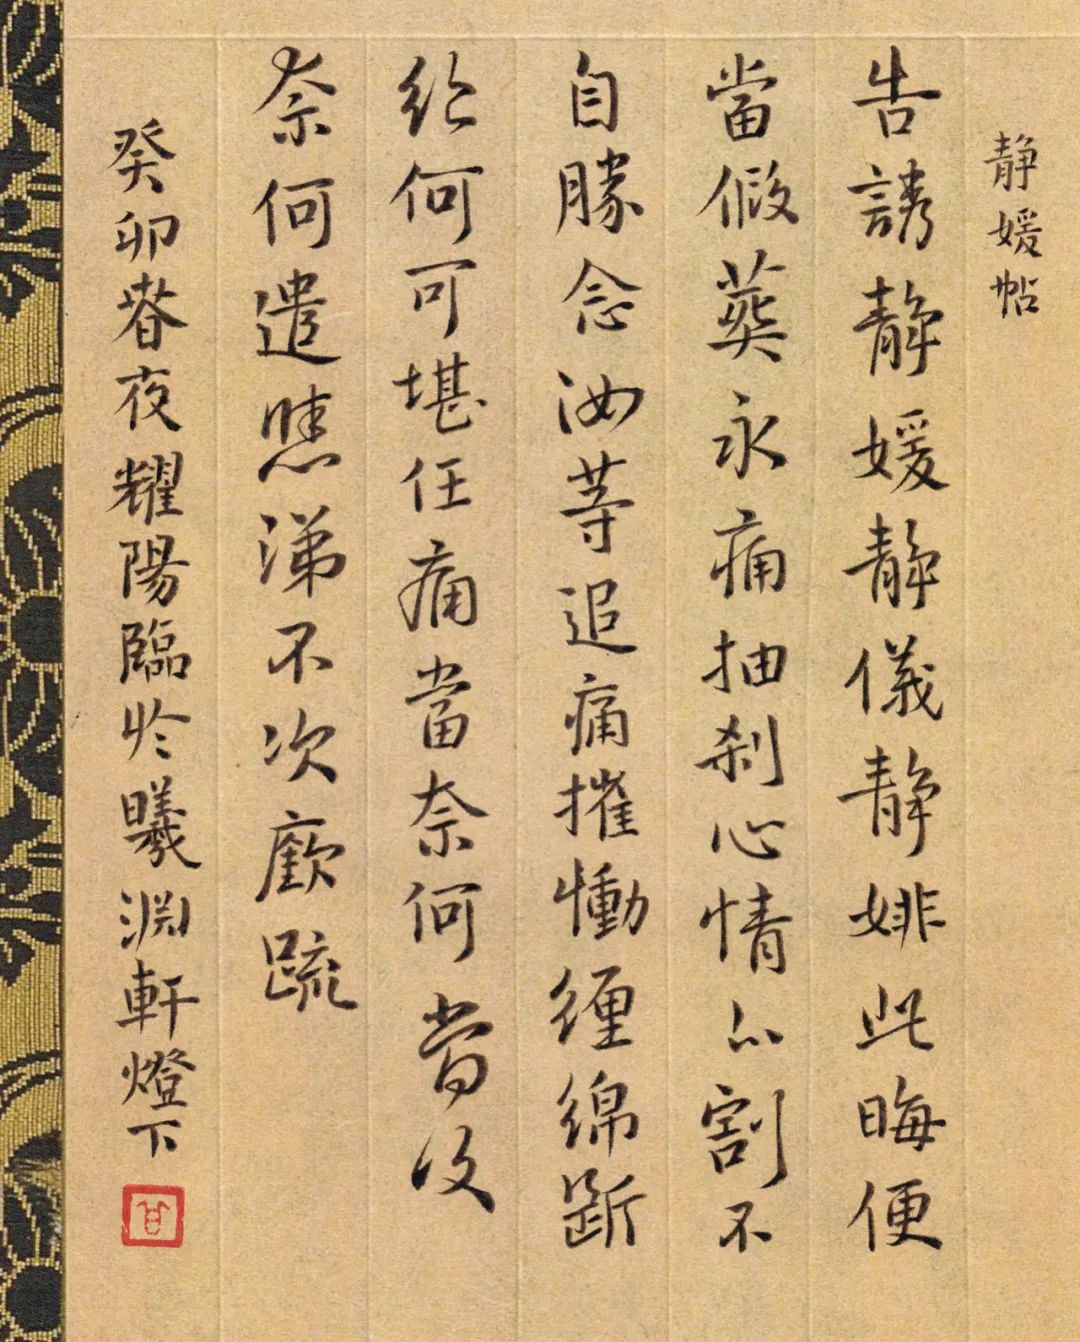 静媛帖
告誘静媛静儀静婔此晦便
當假葬永痛抽剥心情割不
自勝念汝等追痛摧慟纏綿斷
絕何可堪任痛當奈何當復
奈何遣涕不次廞疏
癸卯春夜耀陽臨於曦淵軒燈下